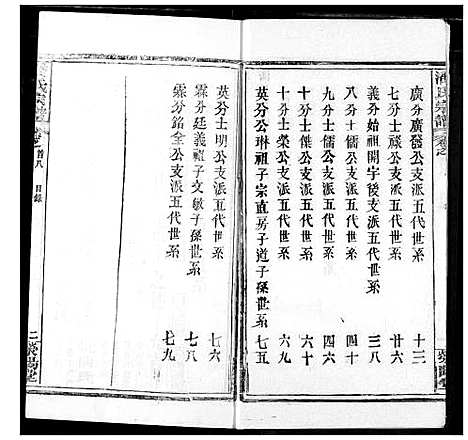 廣分廣發公支派五代世系 十三
七分士毅公支派五代世系 廿六
義分始祖開宇後支派五代世系 三八
八分士十儒公支派五代世系 四六
九分士儒公支派五代世系 六十
十分士榮公支派五代世系 六九
英分公琳祖子宗直房子道子孫世系 七五
英分士明公支派五代世系 七六
霖分廷義祖子文敏子孫世系 七八
霖分銘全公支派五代世系 七九
氏宗譜
卷之首八 目錄
二 滎陽堂